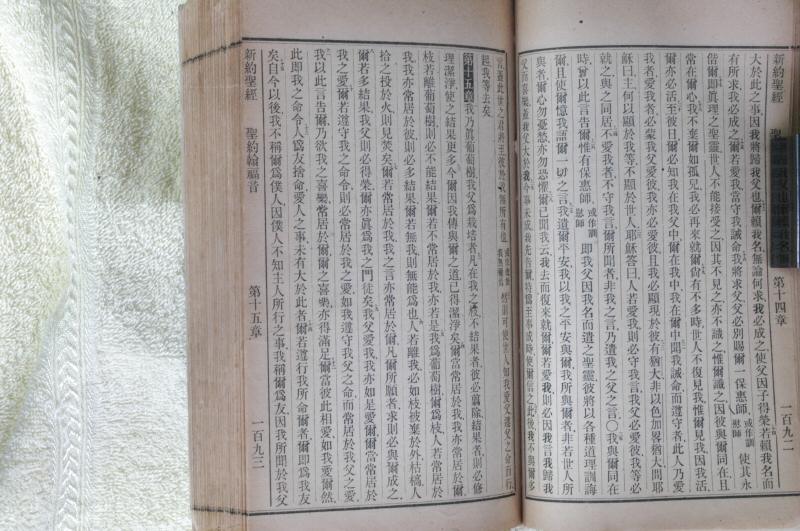 新約聖經
第十四章
一百九二
大於此之事因我將歸我父也爾賴我名無論何求我必成之使父因子得榮若賴我名而
有所求我必成之爾若愛我當守我誡命我將求父父必別賜爾一保惠師或作訓慰師使其永
偕爾即眞理之聖靈世人不能接受之因其不見之亦不識之惟爾識之因彼與爾同在且
常在爾心我不棄爾如孤兒我必再來就爾尚有不多時世人不復見我惟爾見我因我活
爾亦必活于彼日爾必知我在我父中爾在我中我在爾中聞我誡命而遵守者此人乃愛
我者愛我者必蒙我父愛彼我亦必愛彼且我必顯現於彼有猶大非以色加畧猶大問耶
穌曰主何以顯於我等不顯於世人耶穌答曰人若愛我則必守我言我父必愛彼我等必
就之與之同居不愛我者不守我言爾所聞者非我之言乃遣我之父之言〇我與爾同在
時曾以此言告爾惟有保惠師或作訓慰師即我父因我名而遣之聖靈彼將以各種道理訓誨
爾且使爾憶我語爾一切之言我遺爾平安我以我之平安與爾我所與爾者非若世人所
與者爾心勿憂愁亦勿恐懼爾已聞我云我去而復來就爾爾若愛我則必因我言我歸我
父而喜樂蓋我父大於我今事未成我先告爾待爲至事成時使爾信之此後我不與爾多
言蓋此世之君將至彼於我無所有也然則可使世人知我愛父遵父之命而行
起我等去矣
第十五章我乃眞葡萄樹我父爲栽培者凡在我之枝不結果者彼必翦除結果者則必修
理潔淨使之結果更多今爾因我傳與爾之道已得潔淨矣爾當常居於我我亦常居於爾
枝若離葡萄樹則必不能結果爾若不常居於我亦若是我爲葡萄樹爾爲枝人若常居於
我我亦常居於彼則必多結果爾若無我則無能爲也人若離我必如枝被棄於外枯槁人
拾之投於火則見焚矣爾若常居於我我之言亦常居於爾凡爾所願者求則必與爾成之
爾若多結果我父則必得榮爾亦眞爲我之門徒矣我父愛我我亦如是愛爾爾當常居於
我之愛爾若遵守我之命令則必常居於我之愛如我遵守我父之命而常居於我父之愛
我以此言告爾乃欲我之喜樂常居於爾爾之喜樂亦得滿足爾當彼此相愛如我愛爾然
此即我之命令人爲友捨命愛人之事未有大於此者爾若遵行我所命爾者爾即爲我友
矣自今以後我不稱爾爲僕人因僕人不知主人所行之事我稱爾爲友因我所聞於我父
新約聖經
聖約翰福音
第十五章
一百九三